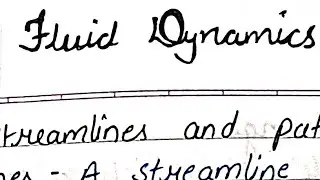 Fluid Dynamics
treamlines and pat
nes - A streamline